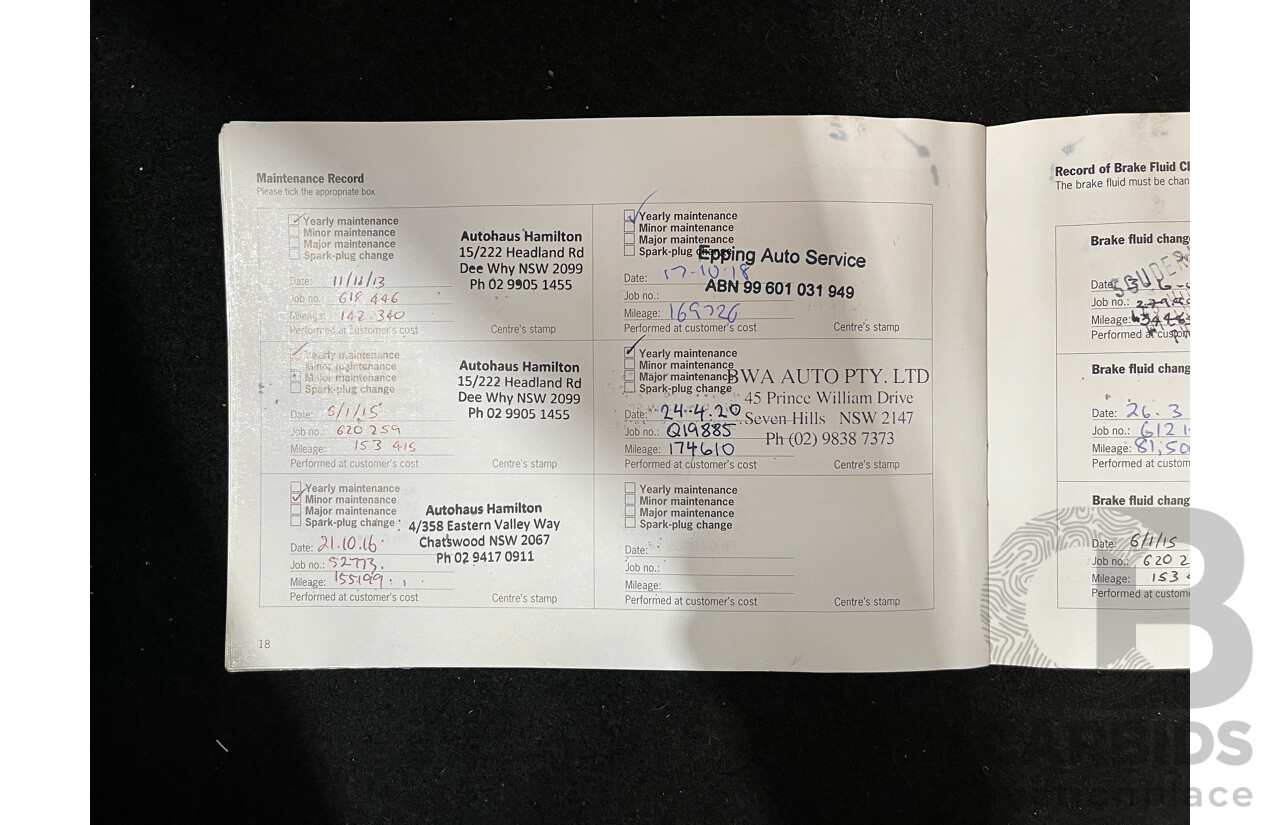 Maintenance Record
Please tick the appropriate box
Yearly maintenance
Minor maintenance
Major maintenance
Spark-plug change
Autohaus Hamilton
15/222 Headland Rd
Dee Why NSW 2099
Ph 02 9905 1455
Date: 11/11/13
Job no.: 618 446
Mileage: 142 340
Performed at customer's cost
Centre's stamp
Yearly maintenance
Minor maintenance
Major maintenance
Spark-plug change
Autohaus Hamilton
15/222 Headland Rd
Dee Why NSW 2099
Ph 02 9905 1455
Date: 6/1/15
Job no.: 620 259
Mileage: 153 415
Performed at customer's cost
Centre's stamp
Yearly maintenance
Minor maintenance
Major maintenance
Spark-plug change
Autohaus Hamilton
4/358 Eastern Valley Way
Chatswood NSW 2067
Ph 02 9417 0911
Date: 21.10.16
Job no.: 52773.
Mileage: 155199
Performed at customer's cost
Centre's stamp
18
Yearly maintenance
Minor maintenance
Major maintenance
Spark-plug change
Epping Auto Service
ABN 99 601 031 949
Date: 17-10-18
Job no.:
Mileage: 169726
Performed at customer's cost
Centre's stamp
Yearly maintenance
Minor maintenance
Major maintenance
Spark-plug change
BWA AUTO PTY. LTD
45 Prince William Drive
Seven Hills NSW 2147
Ph (02) 9838 7373
Date: 24-4-20
Job no.: Q19885
Mileage: 174610
Performed at customer's cost
Centre's stamp
Yearly maintenance
Minor maintenance
Major maintenance
Spark-plug change
Date:
Job no.:
Mileage:
Performed at customer's cost
Centre's stamp
Record of Brake Fluid
The brake fluid must be
Brake fluid
Date:
Job no.:
Mileage:
Performed at
Brake fluid
Date: 26.3
Job no.: 612
Mileage: 81,50
Performed at
Brake fluid
Date: 6/1/15
Job no.: 620 2
Mileage: 153
Performed at